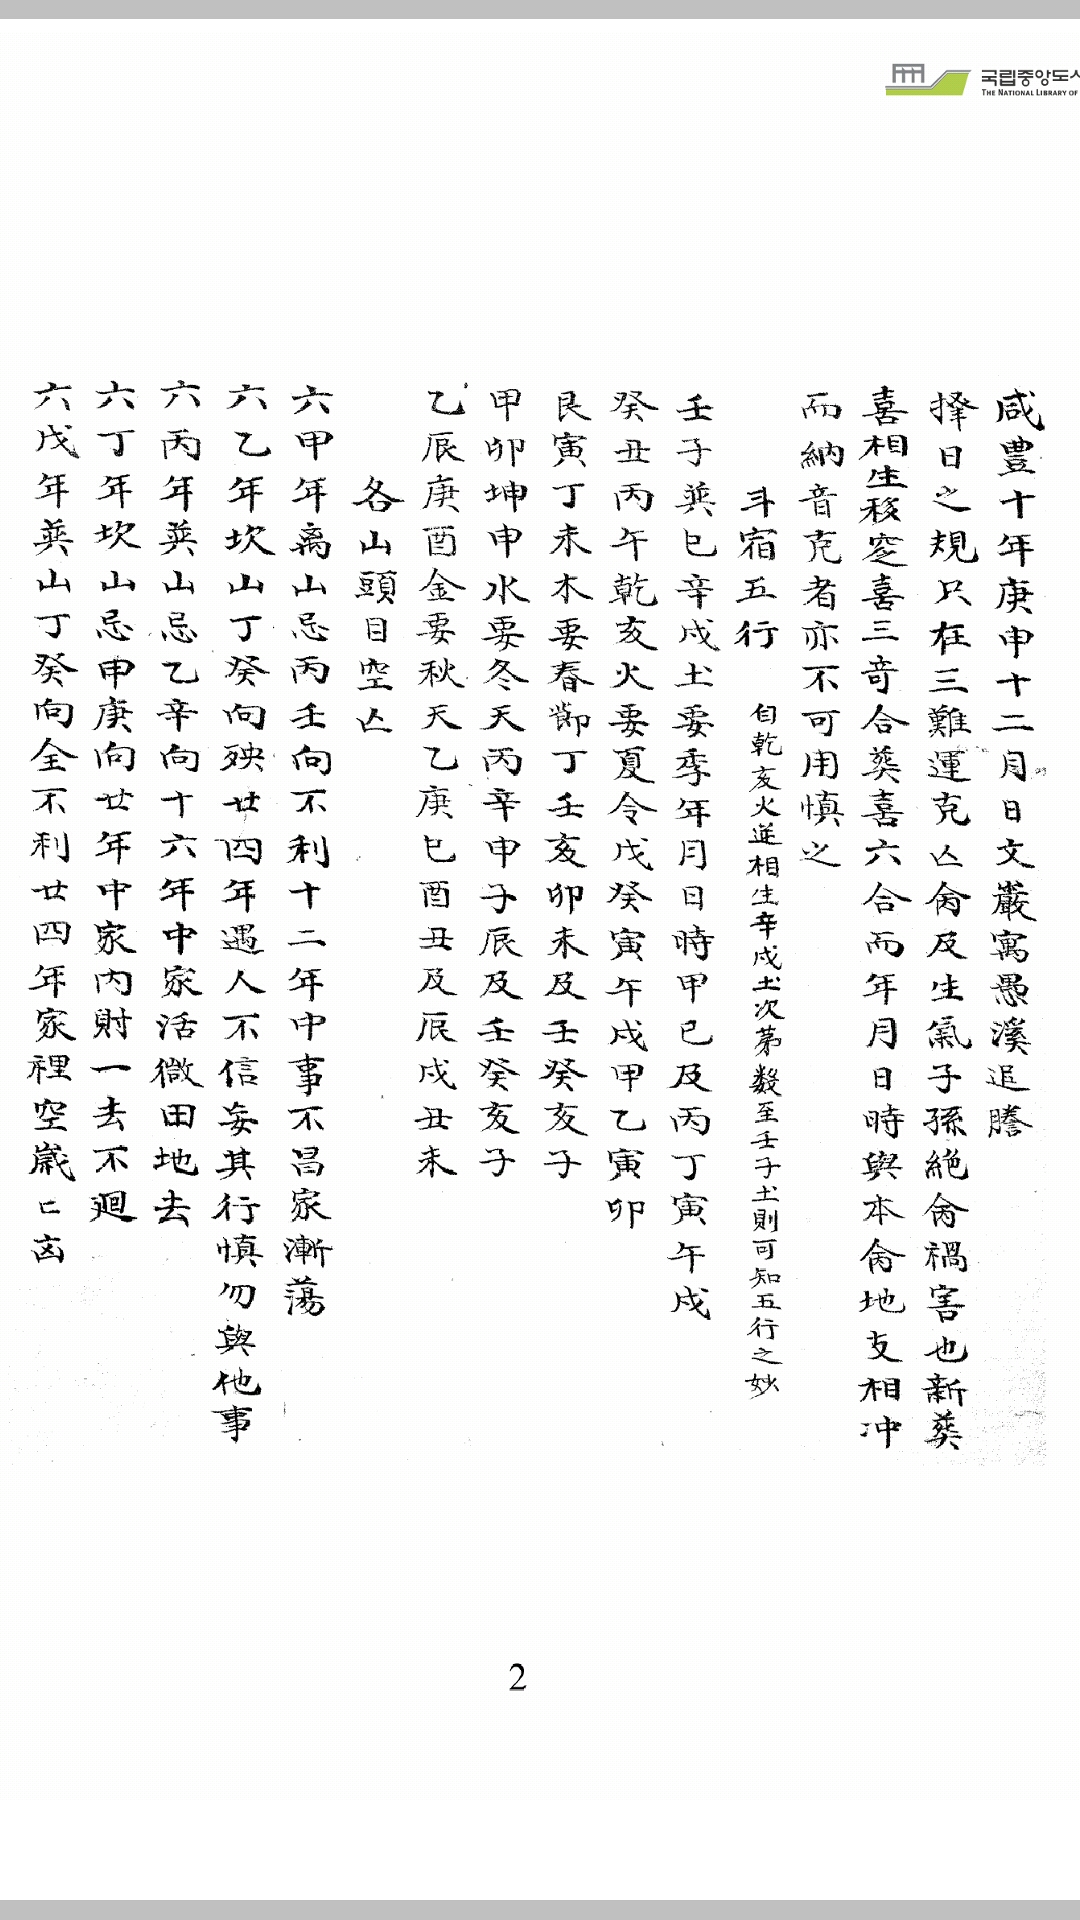 국립중앙도서
THE NATIONAL LIBRARY OF
咸豊十年庚申十二月日文巖寓愚溪追謄
擇日之規只在三難運克亾侖及生氣子孫絶侖禍害也新葬
喜相生移窆喜三竒合葬喜六合而年月日時與本侖地支相冲
而納音克者亦不可用慎之
斗宿五行 自乾亥火逆相生辛戌土次苐數至壬子土則可知五行之妙
壬子巽巳辛戌土要季年月日時甲己及丙丁寅午戌
癸丑丙午乾亥火要夏令戊癸寅午戌甲乙寅卯
艮寅丁未木要春節丁壬亥卯未及壬癸亥子
甲卯坤申水要冬天丙辛申子辰及壬癸亥子
乙辰庚酉金要秋天乙庚巳酉丑及辰戌丑未
各山頭目空亾
六甲年离山忌丙壬向不利十二年中事不昌家漸蕩
六乙年坎山丁癸向殃廿四年遇人不信妄其行慎勿與他事
六丙年巽山忌乙辛向十六年中家活微田地去
六丁年坎山忌甲庚向廿年中家內財一去不廻
六戊年巽山丁癸向全不利廿四年家裡空歲〻凶
2